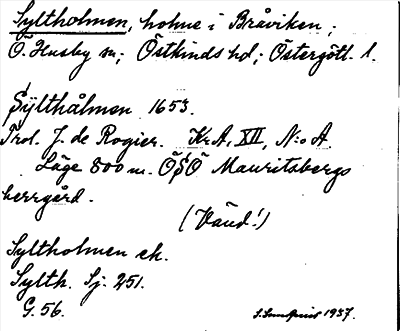 Syltholmen, holme i Bråviken;
Ö. Husby sn; Östkinds hd; Östergötl. l.
Sÿlthålmen 1653.
Prol. J. de Rogier. Kr.A, XII, N:o A.
Läge 800 m. ÖSÖ Mauritsbergs
herrgård.
(Vänd!)
Syltholmen ek.
Sylth. Sj. 251.
G. 56.
1937.